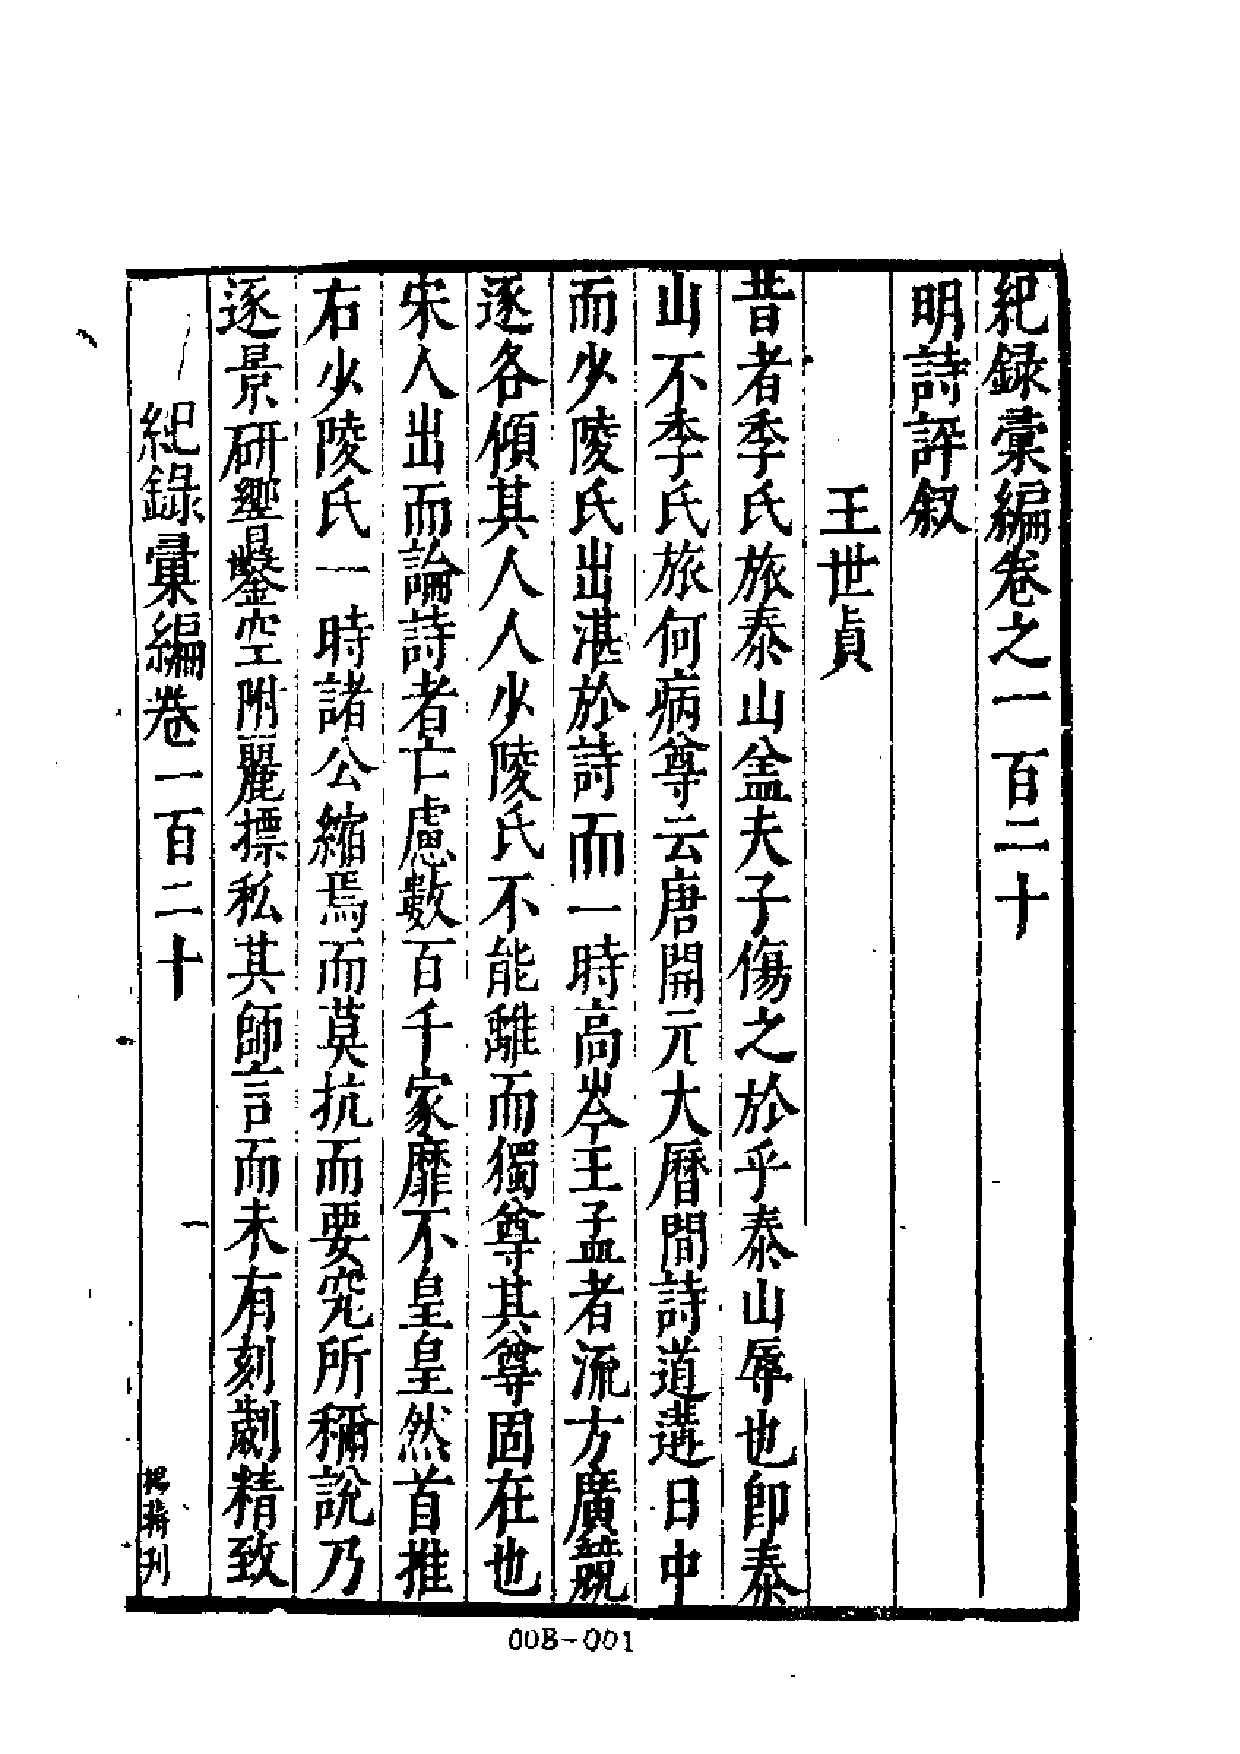 紀録彚編卷之一百二十
明詩評叙
王世貞
昔者季氏旅泰山盖夫子傷之於乎泰山辱也即泰
山不李氏旅何病尊云唐開元大曆間詩道遘日中
而少陵氏出湛於詩而一時高岑王孟者流方廣競
逐各傾其人人少陵氏不能離而獨尊其尊固在也
宋人出而論詩者亡慮數百千家靡不皇皇然首推
右少陵氏一時諸公縮焉而莫抗而要究所稱說乃
逐景研響鑿空附麗摽私其師言而未有刻劌精致
紀錄彚編卷一百二十
一
刋
00B-001